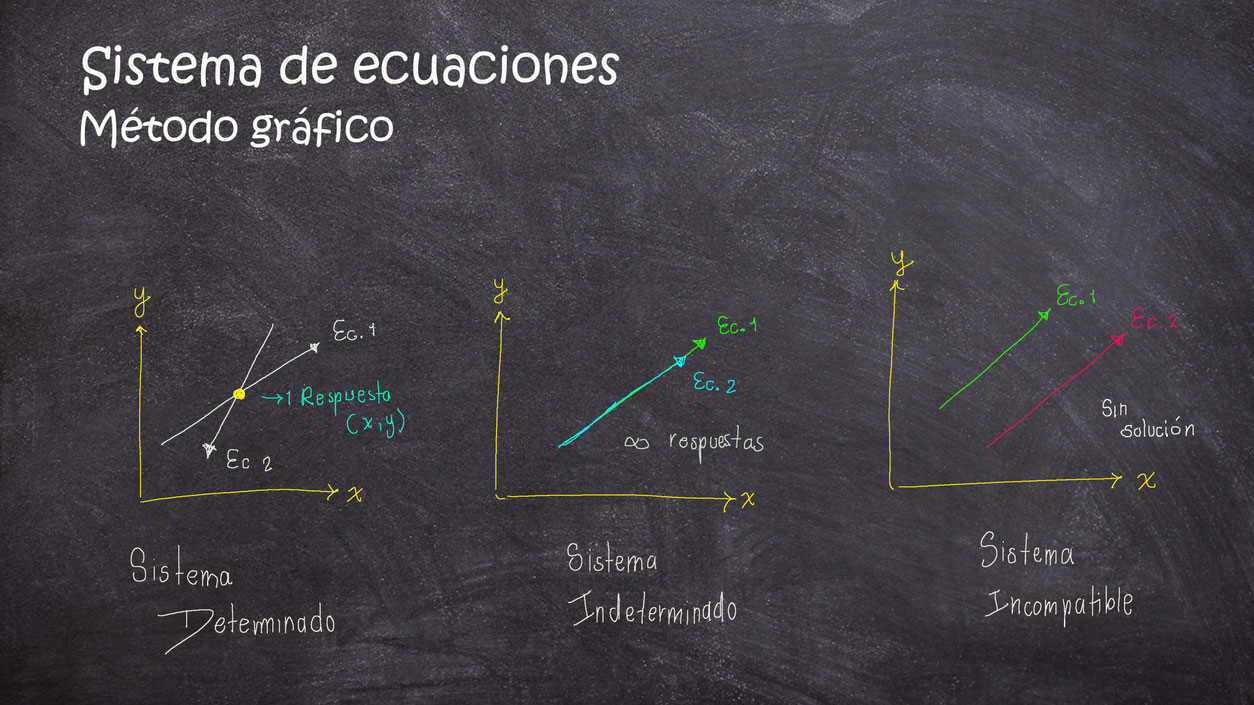 Sistema de ecuaciones
Método gráfico
y
Ec. 1
→ 1 Respuesta
(x,y)
Ec 2
x
Sistema
Determinado
y
Ec. 1
Ec. 2
∞ respuestas
x
Sistema
Indeterminado
y
Ec. 1
Ec. 2
Sin
solución
x
Sistema
Incompatible